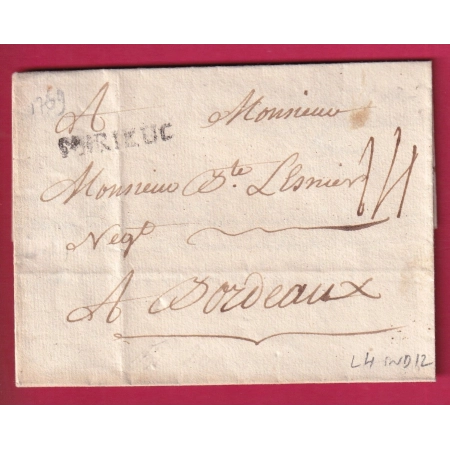 1769
A Monsieur
Sᵗ BRIEUC
Monsieur Ste Lesnier
Negt
A Bordeaux
L4 IND12